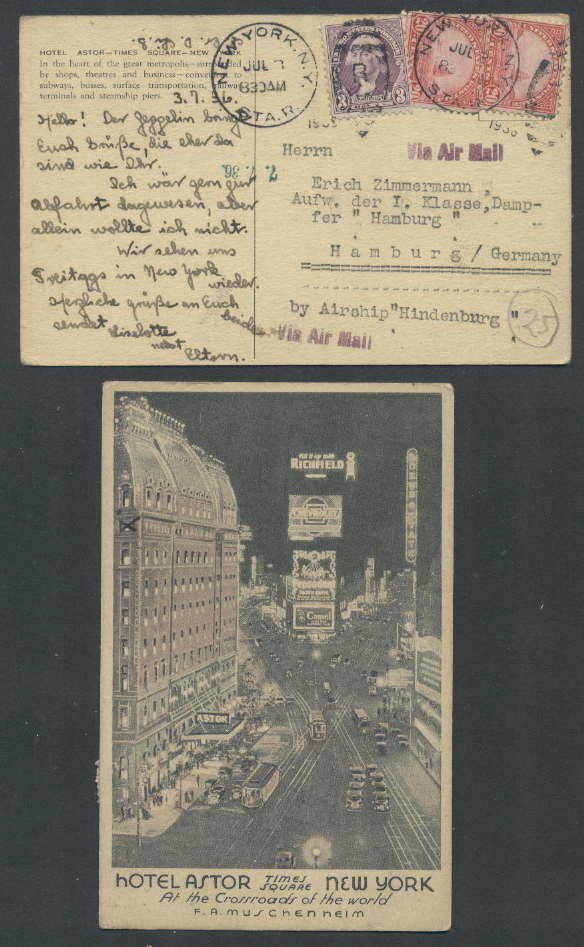 HOTEL ASTOR—TIMES SQUARE—NEW YORK
In the heart of the great metropolis—surrounded
by shops, theatres and business—convenient to
subways, busses, surface transportation, railway
terminals and steamship piers.
3.7.36.
Hello! Der Zeppelin bringt
Euch Grüße, die eher da
sind wie Ihr.
Ich wär gern zur
Abfahrt dagewesen, aber
allein wollte ich nicht.
Wir sehen uns
Freitags in New York
wieder.
Herzliche Grüße an Euch
beide
sendet Liselotte
nebst
Eltern.
7. 7. 36
NEW YORK, N.Y.
JUL
830AM
STA. R.
3
NEW YORK, N.Y.
JUL
STA. R.
1936
Via Air Mail
Herrn
Erich Zimmermann,
Aufw. der I. Klasse, Damp-
fer "Hamburg"
Hamburg / Germany
by Airship "Hindenburg".
25
Via Air Mail
Fill it up with
RICHFIELD
CHEVROLET
Camel
ASTOR
HOTEL ASTOR TIMES SQUARE NEW YORK
At the Crossroads of the world
F. A. MUSCHENHEIM